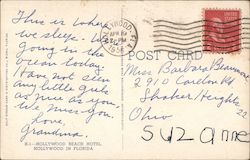 This is where
we sleep. We're
going in the
ocean today.
Have not seen
any little girls
as nice as you.
We miss you.
Love,
Grandma.
HOLLYWOOD BEACH HOTEL
HOLLYWOOD IN FLORIDA
HOLLYWOOD, FLA.
APR 19
PM
1956
POST CARD
Miss Barbara
2910
Shaker Heights
22
Ohio
SUZanne